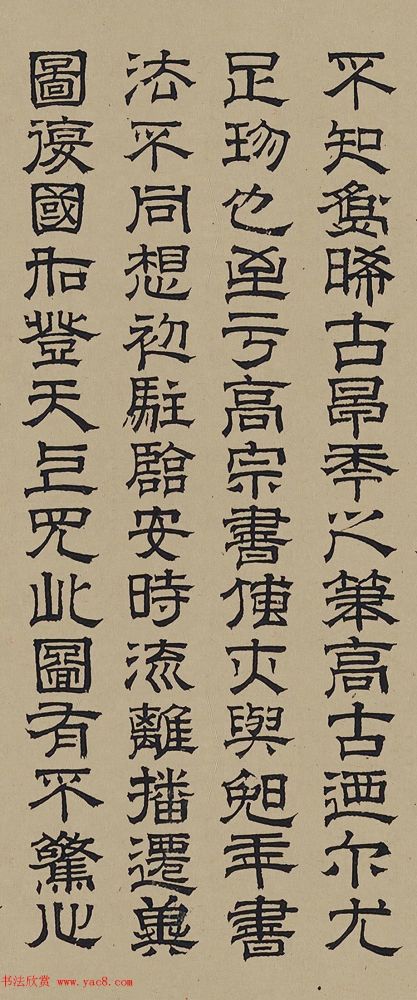 不知爲晞古早年之筆高古迺尔尤
足珍也至亏高宗書傳亦與晚年書
法不同想初駐臨安時流離播遷冀
圖復國如登天此圖有不驚心
书法欣赏 www.yac8.com